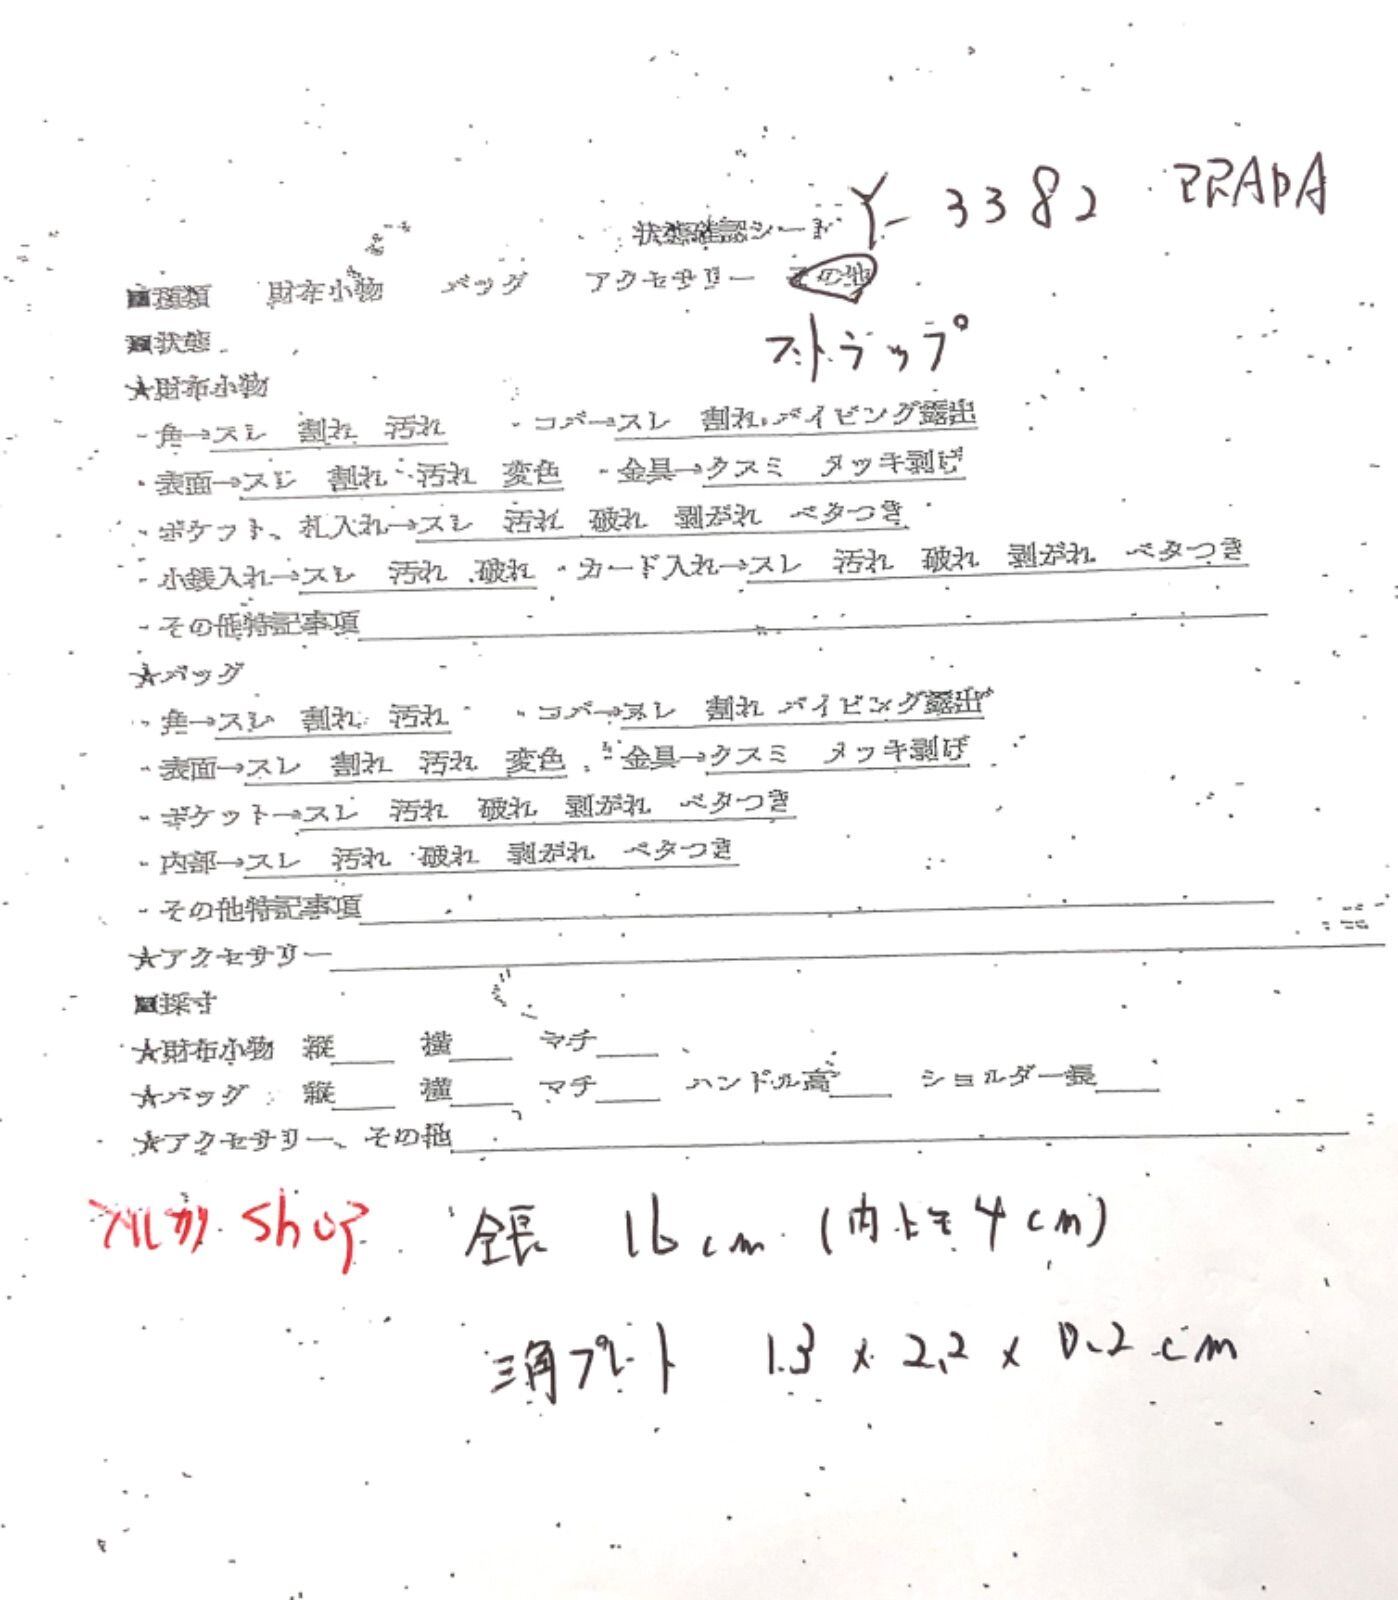 Y-3382 PRADA
状態確認シート
■種類 財布小物 バッグ アクセサリー その他
ストラップ
■状態
★財布小物
・角→スレ 割れ 汚れ ・コバ→スレ 割れ パイピング露出
・表面→スレ 割れ 汚れ 変色 ・金具→クスミ メッキ剥げ
・ポケット、札入れ→スレ 汚れ 破れ 剥がれ ベタつき
・小銭入れ→スレ 汚れ 破れ ・カード入れ→スレ 汚れ 破れ 剥がれ ベタつき
・その他特記事項
★バッグ
・角→スレ 割れ 汚れ ・コバ→スレ 割れ パイピング露出
・表面→スレ 割れ 汚れ 変色 ・金具→クスミ メッキ剥げ
・ポケット→スレ 汚れ 破れ 剥がれ ベタつき
・内部→スレ 汚れ 破れ 剥がれ ベタつき
・その他特記事項
★アクセサリー
■採寸
★財布小物 縦 横 マチ
★バッグ 縦 横 マチ ハンドル高 ショルダー長
★アクセサリー、その他
メルカリ shop 全長 16cm (内 4cm)
三角プレート 1.3 × 2.2 × 0.2 cm